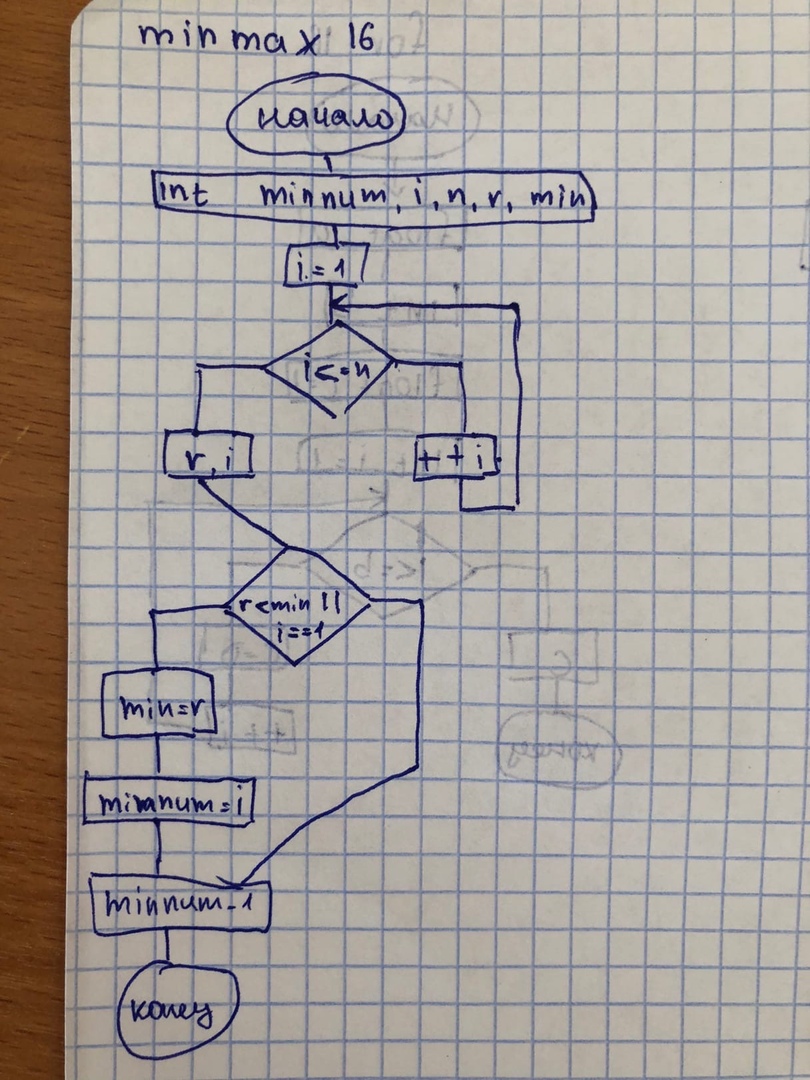 min max 16
начало
int minnum, i, n, r, min
i = 1
i <= n
r, i
++i
r < min ||
i == 1
min = r
minnum = i
minnum - 1
конец